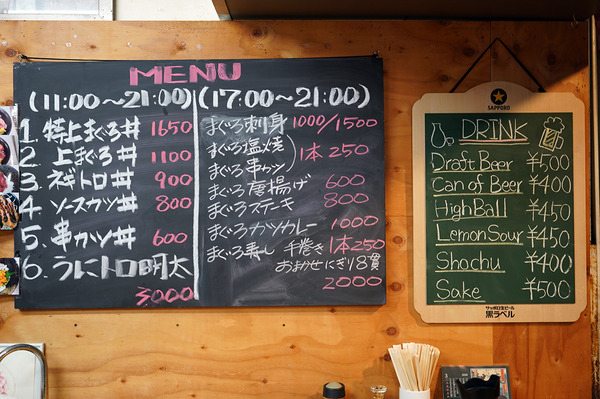 MENU
(11:00~21:00)
1. 特上まぐろ丼 1650
2 上まぐろ丼 1100
3. ネギトロ丼 900
4. ソースカツ丼 800
5. 串カツ丼 600
6. うにトロ明太
3000
(17:00~21:00)
まぐろ刺身 1000/1500
まぐろ塩焼
まぐろ串カツ ) 1本 250
まぐろ唐揚げ 600
まぐろステーキ 800
まぐろカツカレー 1000
まぐろ寿し 手巻き 1本250
おまかせにぎり8貫
2000
SAPPORO
DRINK
Draft Beer ¥500
Can of Beer ¥400
High Ball ¥450
Lemon Sour ¥450
Shochu ¥400
Sake ¥500
サッポロ生ビール
黒ラベル